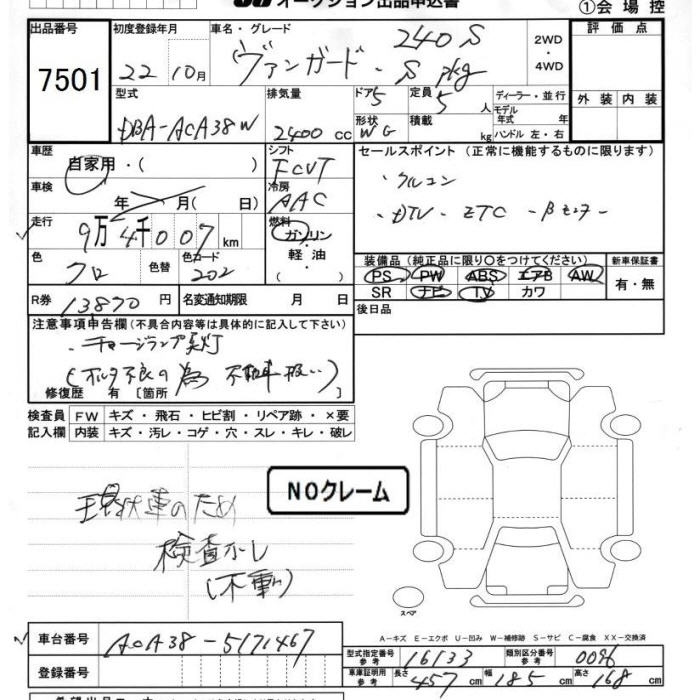 オークション出品申込書
①会場控
出品番号 初度登録年月 車名・グレード 評価点
7501 22 10月 ヴァンガード・240S S pkg 2WD・4WD
型式 排気量 ドア 定員 ディーラー・並行 外装 内装
DBA-ACA38W 2400cc 5 5人 モデル年式 年
形状 積載 kg ハンドル 左・右
WG
車歴 シフト セールスポイント(正常に機能するものに限ります)
自家用・( ) FCVT ・クルコン
車検 冷房
年 月( 日) AAC ・DTV・ETC・Bモニター
走行 燃料
9万4千007km ガソリン・軽油・( )
色 色替 色コード 装備品(純正品に限り○をつけてください) 新車保証書
クロ 202 PS PW ABS エアB AW 有・無
SR ナビ TV カワ
R券 13870円 名変通知期限 月 日 後日品
注意事項申告欄(不具合内容等は具体的に記入して下さい)
・チャージランプ点灯
(オルタ不良の為 不動車扱い)
修復歴 有[箇所 ]
検査員 FW キズ・飛石・ヒビ割・リペア跡・×要
記入欄 内装 キズ・汚レ・コゲ・穴・スレ・キレ・破レ
NOクレーム
現状車のため
検査ナシ
(不動)
スペア
A-キズ E-エクボ U-凹み W-補修跡 S-サビ C-腐食 XX-交換済
車台番号 ACA38-5171467
型式指定番号 参考 16133 類別区分番号 参考 0096
登録番号 車庫証明用 参考 長さ 457cm 幅 185cm 高さ 168cm